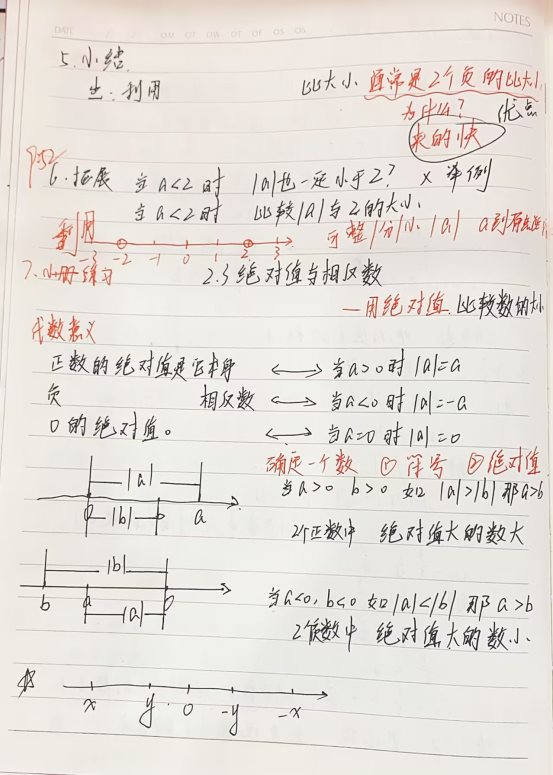 NOTES
DATE
5. 小结.
比大小 通常是2个负的比大小
出: 利用
为什么? 优点
来的快
P52
6. 拓展 当a<2时 |a|也一定小于2? × 举例
当a<2时 比较|a|与2的大小.
利用
-3 -2 -1 0 1 2 3
可整|分|小 |a|
7. 小册练习
2.3绝对值与相反数
—用绝对值 比较数的大小
代数意义
正数的绝对值是它本身 ⟷ 当a>0时 |a|=a
负 相反数 ⟷ 当a<0时 |a|=-a
0的绝对值。 ⟷ 当a=0时 |a|=0
确定一个数 ① 符号 ② 绝对值
|a|
当a>0 b>0 如 |a|>|b| 那a>b
0 |b| b a
2个正数中 绝对值大的数大
|b|
b a 0
当a<0, b<0 如|a|<|b| 那a>b
|a|
2个负数中 绝对值大的数小.
x y 0 -y -x